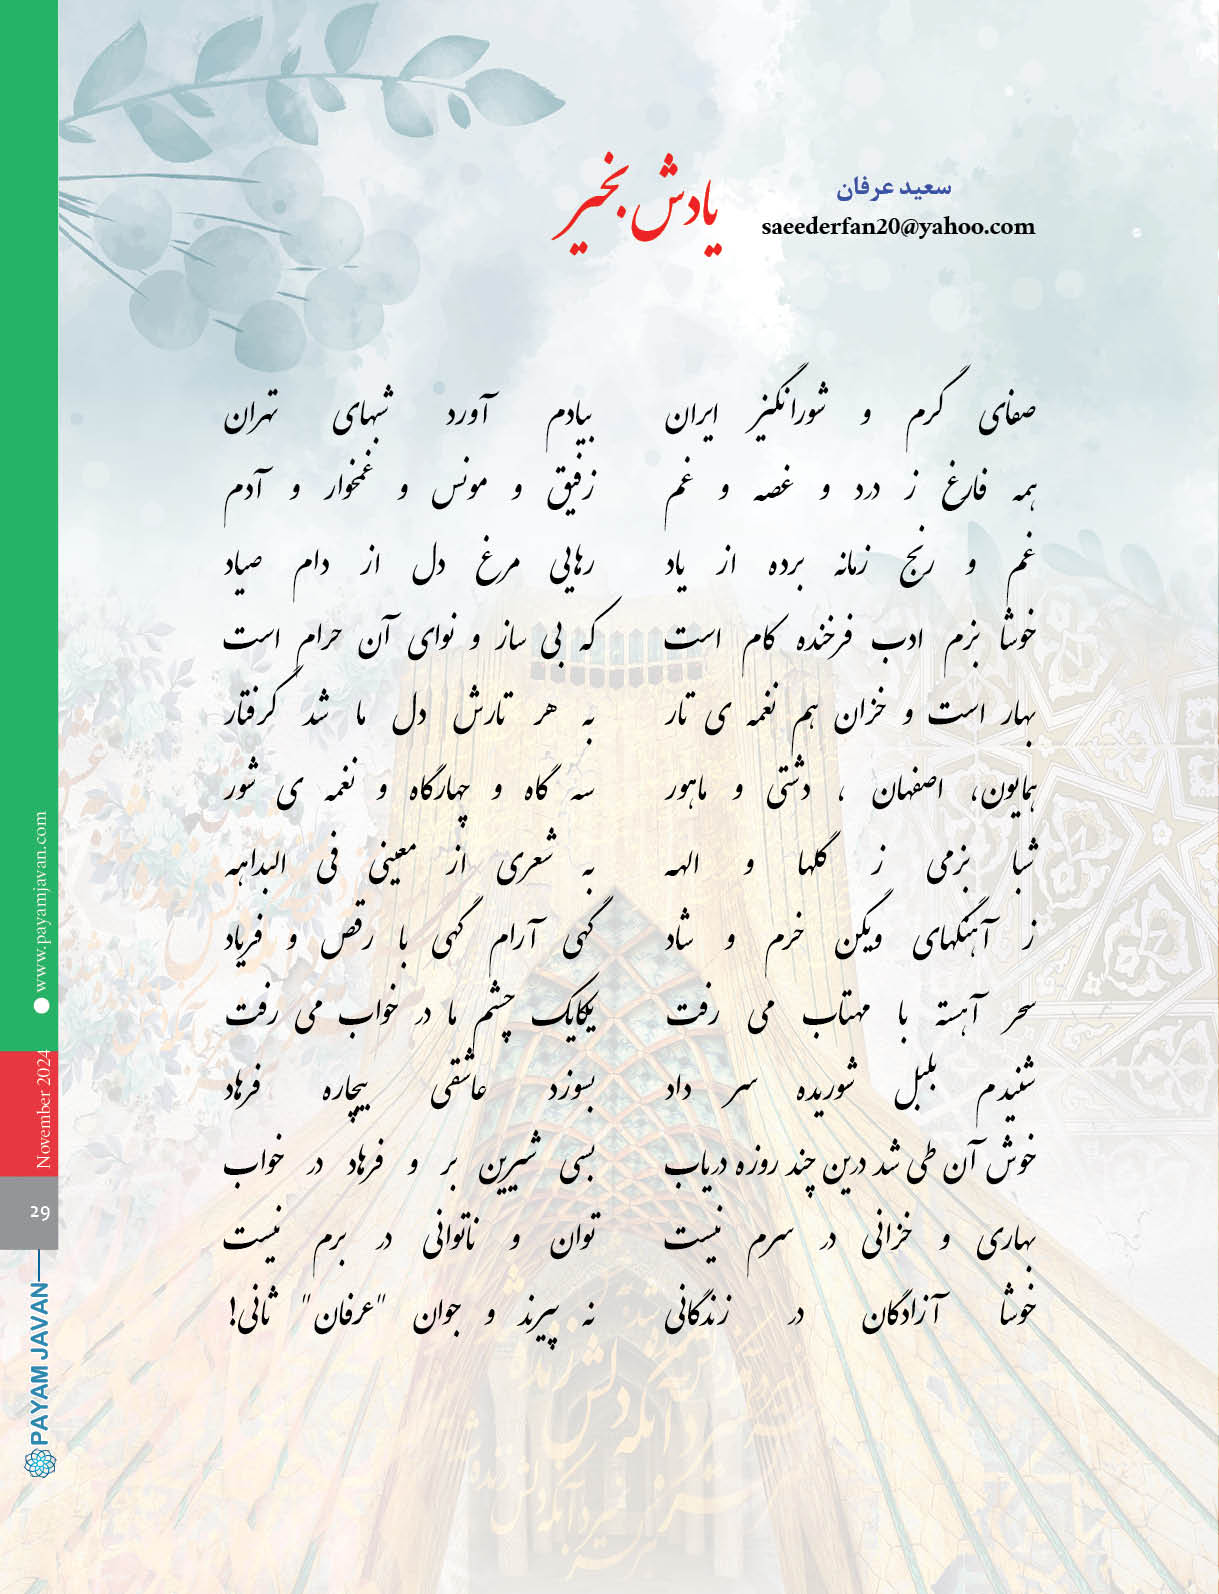 سعید عرفان
saeederfan20@yahoo.com
یادش بخیر
صفای گرم و شورانگیز ایران بیادم آورد شبهای تهران
همه فارغ ز درد و غصه و غم رفیق و مونس و غمخوار و آدم
غم و رنج زمانه برده از یاد رهایی مرغ دل از دام صیاد
خوشا بزم ادب فرخنده کام است که بی ساز و نوای آن حرام است
بهار است و خزان هم نغمه ی تار به هر تارش دل ما شد گرفتار
همایون، اصفهان ، دشتی و ماهور سه گاه و چهارگاه و نغمه ی شور
شبا بزمی ز گلها و الهه به شعری از معینی فی البداهه
ز آهنگهای ویگن خرم و شاد گهی آرام گهی با رقص و فریاد
سحر آهسته با مهتاب می رفت یکایک چشم ما در خواب می رفت
شنیدم بلبل شوریده سر داد بسوزد عاشقی بیچاره فرهاد
خوش آن طی شد درین چند روزه دریاب بسی شیرین بر و فرهاد در خواب
بهاری و خزانی در سرم نیست توان و ناتوانی در برم نیست
خوشا آزادگان در زندگانی نه پیرند و جوان "عرفان" ثانی!
www.payamjavan.com
November 2024
29
PAYAM JAVAN